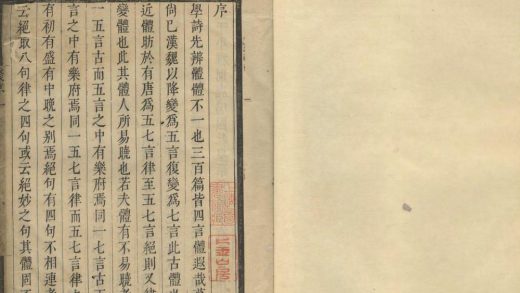 序
學詩先辨體體不一也三百篇皆四言體遐哉
尙已漢魏以降變爲五言復變爲七言此古體也
近體肪於有唐爲五七言律至五七言絕則又律
變體也此其體人所易曉也若夫體有不易曉者
一五言古而五言之中有樂府焉同一七言古而
言之中有樂府焉同一五七言律而五七言律
有初有盛有中晚之别焉絕句有四句不相連者
云絕取八句律之四句或云絕妙之句其體固不